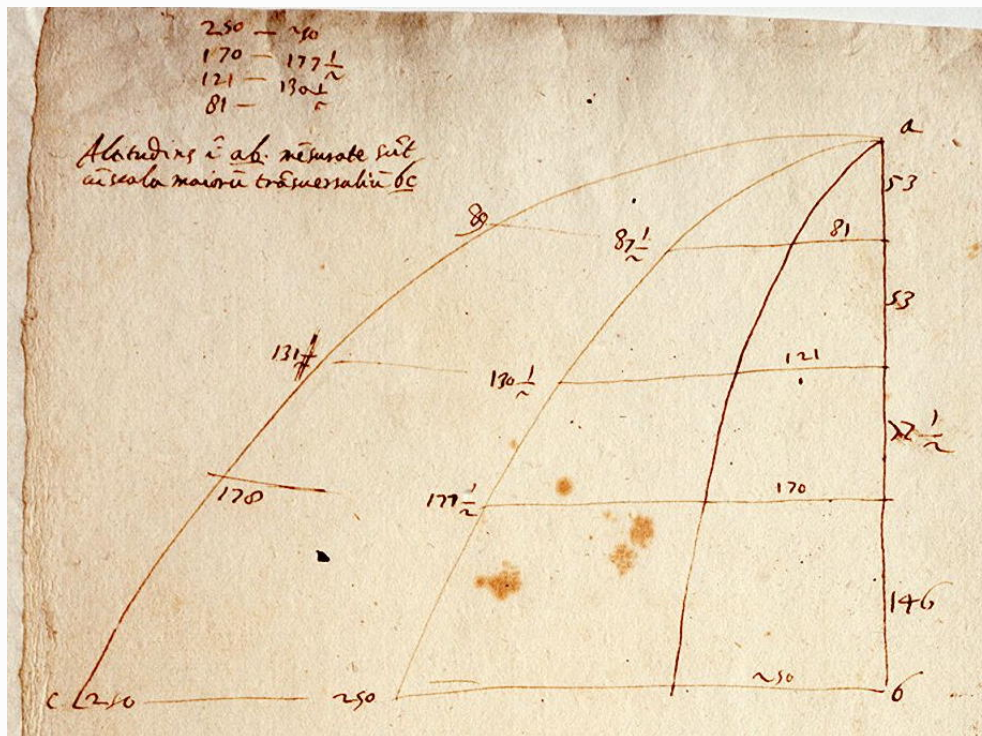 250 — 250
170 — 177 1/2
121 — 130 1/2
81 —
Altitudines ī ab. mēsurate sūt
cū scala maiorū trāsuersaliū bc
a
53
87 1/2
81
53
131
121
130 1/2
170
178
177 1/2
146
c 250
250
250
b